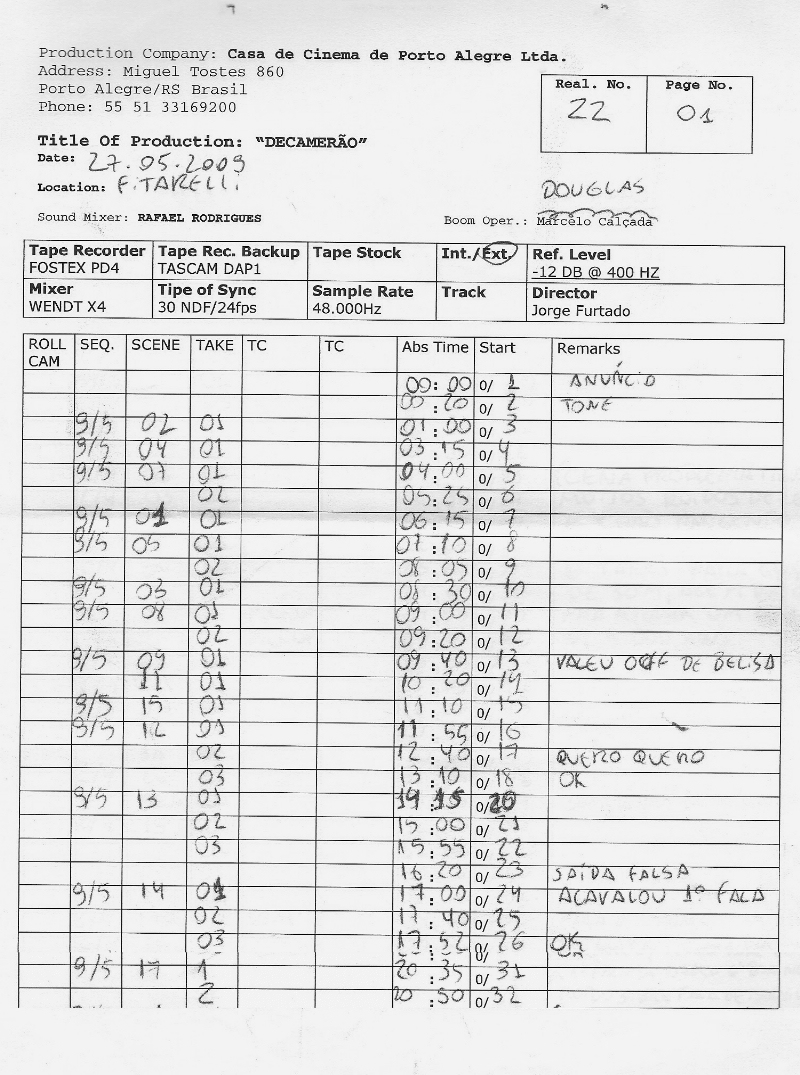 Production Company: Casa de Cinema de Porto Alegre Ltda.
Address: Miguel Tostes 860
Porto Alegre/RS Brasil
Phone: 55 51 33169200
Real. No. Page No.
22 01
Title Of Production: “DECAMERÃO”
Date: 27.05.2009
Location: F. TARELLI
DOUGLAS
Sound Mixer: RAFAEL RODRIGUES Boom Oper.: Marcelo Calçada
Tape Recorder Tape Rec. Backup Tape Stock Int./Ext. Ref. Level
FOSTEX PD4 TASCAM DAP1 -12 DB @ 400 HZ
Mixer Tipe of Sync Sample Rate Track Director
WENDT X4 30 NDF/24fps 48.000Hz Jorge Furtado
ROLL CAM SEQ. SCENE TAKE TC TC Abs Time Start Remarks
00:00 0/ 1 ANÚNCIO
00:20 0/ 2 TONE
9/5 02 01 01:00 0/ 3
9/5 04 01 03:15 0/ 4
9/5 07 01 04:00 0/ 5
02 05:25 0/ 6
9/5 01 01 06:15 0/ 7
9/5 05 01 07:10 0/ 8
02 08:05 0/ 9
9/5 03 01 08:30 0/ 10
9/5 08 01 09:00 0/ 11
02 09:20 0/ 12
9/5 09 01 09:40 0/ 13 VALEU OFF DE BELISA
11 01 10:20 0/ 14
9/5 15 01 11:10 0/ 15
9/5 12 01 11:55 0/ 16
02 12:40 0/ 17 QUERO QUERO
03 13:10 0/ 18 OK
9/5 13 01 14:15 0/ 20
02 15:00 0/ 21
03 15:55 0/ 22
16:20 0/ 23 SAÍDA FALSA
9/5 14 01 17:00 0/ 24 ACAVALOU 1º FALA
02 17:40 0/ 25
03 17:52 0/ 26 OK
0/
9/5 17 1 20:35 0/ 31
2 20:50 0/ 32